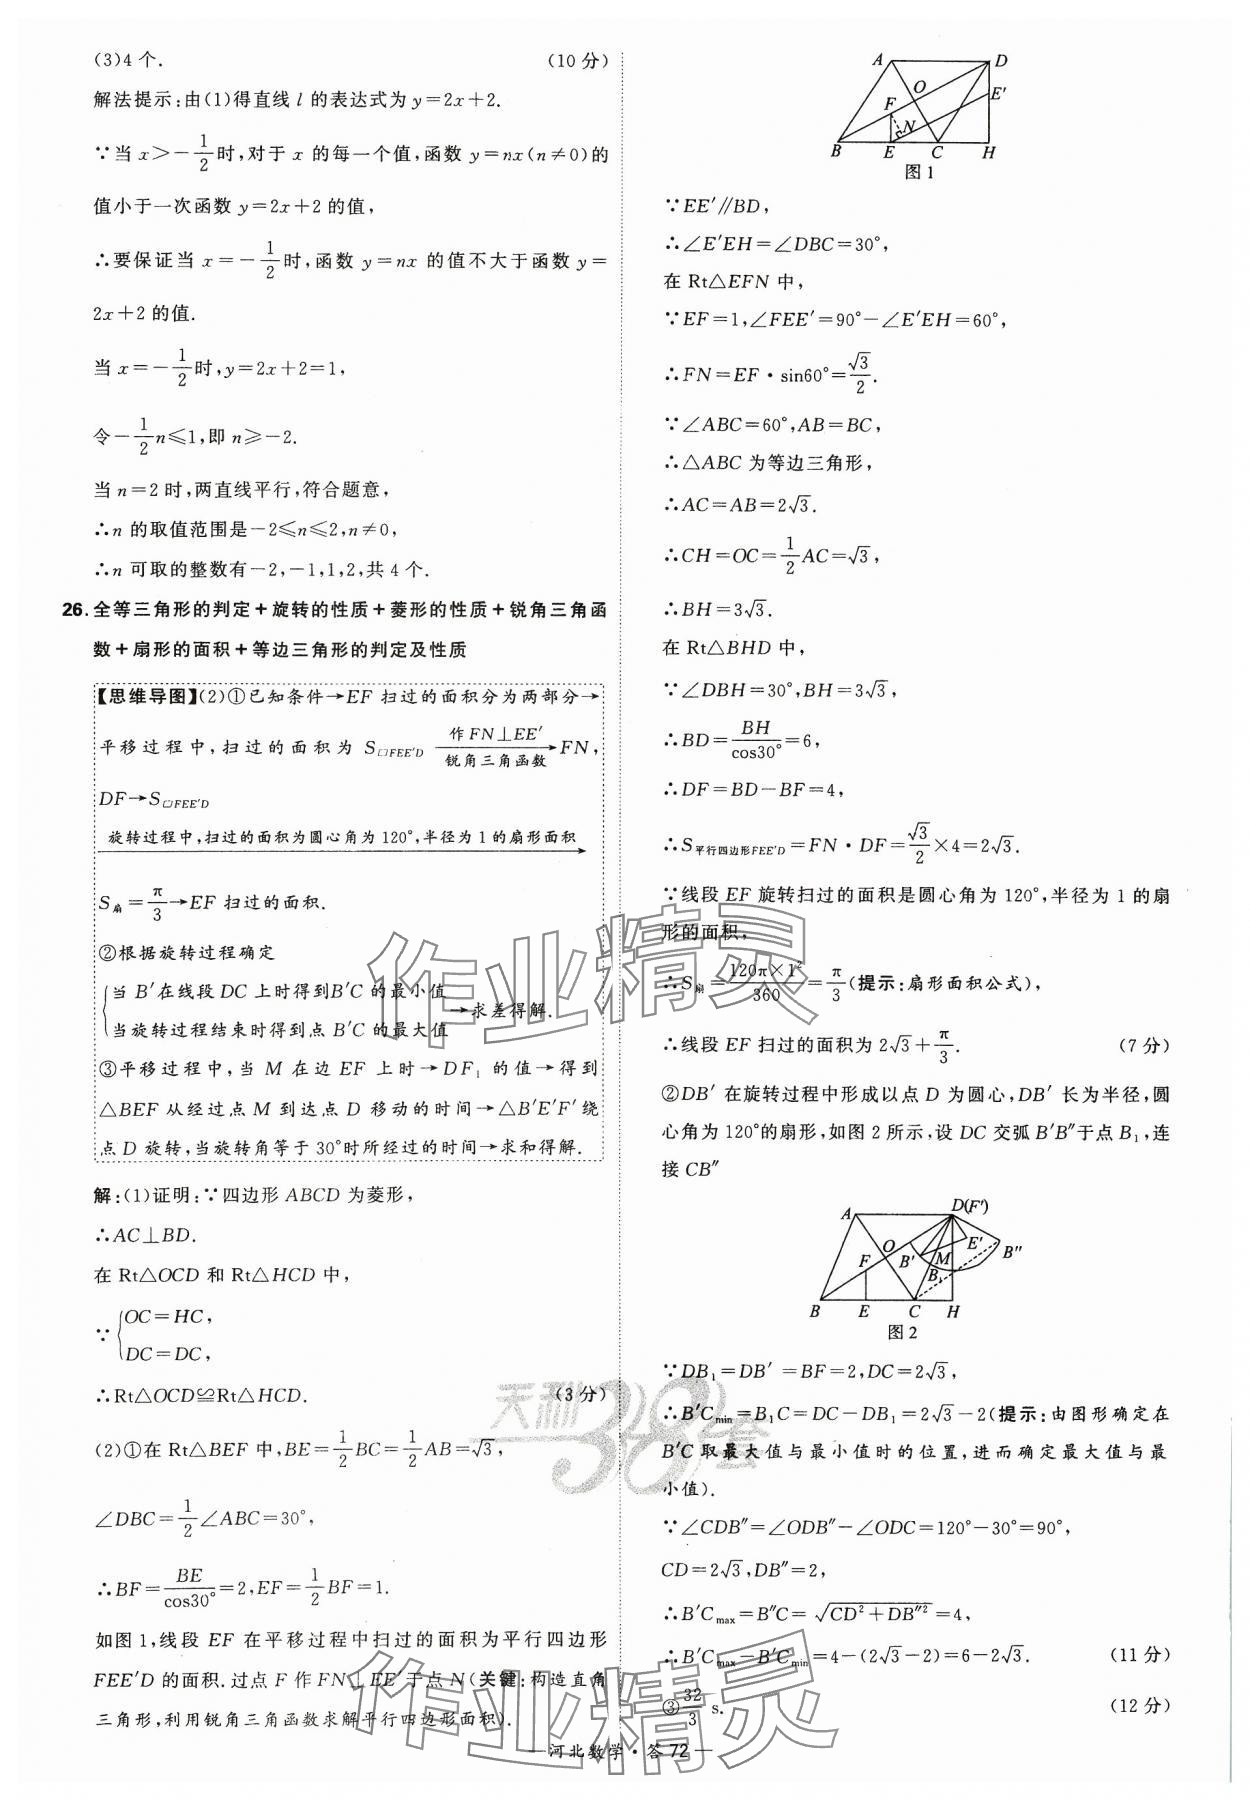 (3)4 个. (10 分)
解法提示:由(1)得直线 l 的表达式为 y=2x+2.
∵当 x>-1/2时,对于 x 的每一个值,函数 y=nx(n≠0)的
值小于一次函数 y=2x+2 的值,
∴要保证当 x=-1/2时,函数 y=nx 的值不大于函数 y=
2x+2 的值.
当 x=-1/2时,y=2x+2=1,
令-1/2n≤1,即 n≥-2.
当 n=2 时,两直线平行,符合题意,
∴n 的取值范围是-2≤n≤2,n≠0,
∴n 可取的整数有-2,-1,1,2,共 4 个.
26.全等三角形的判定+旋转的性质+菱形的性质+锐角三角函
数+扇形的面积+等边三角形的判定及性质
【思维导图】(2)①已知条件→EF 扫过的面积分为两部分→
平移过程中,扫过的面积为 S▱FEE′D 作 FN⊥EE′ 锐角三角函数→FN,
DF→S▱FEE′D
旋转过程中,扫过的面积为圆心角为 120°,半径为 1 的扇形面积→
S扇=π/3→EF 扫过的面积.
②根据旋转过程确定
{当 B′在线段 DC 上时得到B′C 的最小值
当旋转过程结束时得到点 B′C 的最大值→求差得解.
③平移过程中,当 M 在边 EF 上时→DF₁ 的值→得到
△BEF 从经过点 M 到达点 D 移动的时间→△B′E′F′绕
点 D 旋转,当旋转角等于 30°时所经过的时间→求和得解.
解:(1)证明:∵四边形 ABCD 为菱形,
∴AC⊥BD.
在 Rt△OCD 和 Rt△HCD 中,
∵{OC=HC,
DC=DC,
∴Rt△OCD≌Rt△HCD. (3 分)
(2)①在 Rt△BEF 中,BE=1/2BC=1/2AB=√3,
∠DBC=1/2∠ABC=30°,
∴BF=BE/cos30°=2,EF=1/2BF=1.
如图 1,线段 EF 在平移过程中扫过的面积为平行四边形
FEE′D 的面积.过点 F 作 FN⊥EE′于点 N(关键:构造直角
三角形,利用锐角三角函数求解平行四边形面积).
A D O E′ F N B E C H
图 1
∵EE′∥BD,
∴∠E′EH=∠DBC=30°,
在 Rt△EFN 中,
∵EF=1,∠FEE′=90°-∠E′EH=60°,
∴FN=EF·sin60°=√3/2.
∵∠ABC=60°,AB=BC,
∴△ABC 为等边三角形,
∴AC=AB=2√3.
∴CH=OC=1/2AC=√3,
∴BH=3√3.
在 Rt△BHD 中,
∵∠DBH=30°,BH=3√3,
∴BD=BH/cos30°=6,
∴DF=BD-BF=4,
∴S平行四边形FEE′D=FN·DF=√3/2×4=2√3.
∵线段 EF 旋转扫过的面积是圆心角为 120°,半径为 1 的扇
形的面积,
∴S扇=120π×1²/360=π/3(提示:扇形面积公式),
∴线段 EF 扫过的面积为 2√3+π/3. (7 分)
②DB′ 在旋转过程中形成以点 D 为圆心,DB′ 长为半径,圆
心角为 120°的扇形,如图 2 所示,设 DC 交弧 B′B″于点 B₁,连
接 CB″
A D(F′) O B′ M E′ B″ F B₁ B E C H
图 2
∵DB₁=DB′=BF=2,DC=2√3,
∴B′Cmin=B₁C=DC-DB₁=2√3-2(提示:由图形确定在
B′C 取最大值与最小值时的位置,进而确定最大值与最
小值).
∵∠CDB″=∠ODB″-∠ODC=120°-30°=90°,
CD=2√3,DB″=2,
∴B′Cmax=B″C=√(CD²+DB″²)=4,
∴B′Cmax-B′Cmin=4-(2√3-2)=6-2√3. (11 分)
③32/3 s. (12 分)
— 河北数学·答 72 —
作业精灵
天利38套
作业精灵